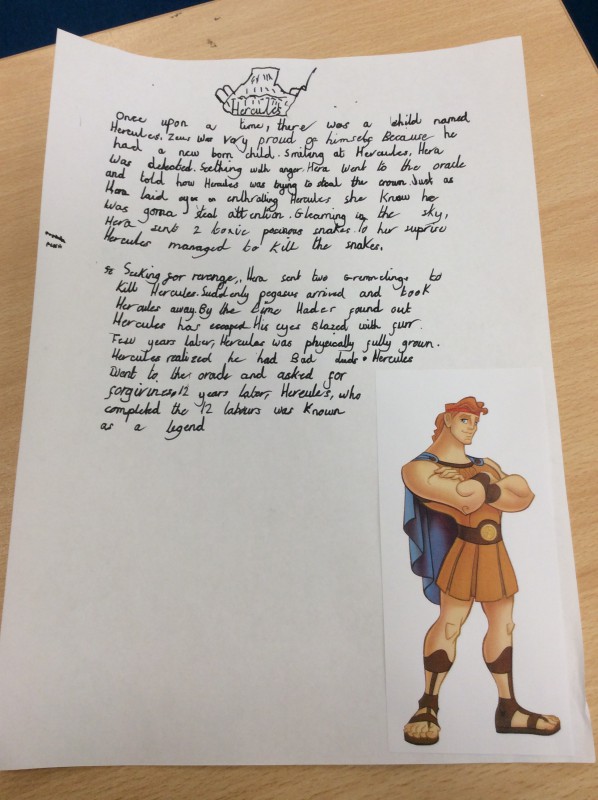 Hercules
Once upon a time, there was a child named
Hercules. Zeus was very proud of himself Because he
had a new born child. Smiling at Hercules, Hera
was defeated. Seething with anger. Hera went to the oracle
and told how Hercules was trying to steal the crown. Just as
Hera laid eyes on enthralling Hercules she know he
was gonna steal attention. Gleaming in the sky,
Hera sent 2 toxic poisinous snakes. To her suprise
Hercules managed to kill the snakes.
Seeking for revenge, Hera sent two Gremelings to
kill Hercules. Suddenly pegasus arrived and took
Hercules away. By the time Hades found out
Hercules has escaped. His eyes Blazed with furr.
Few years later, Hercules was physically fully grown.
Hercules realized he had Bad duds. Hercules
Went to the oracle and asked for
forgiviness. 12 years later, Hercules, who
completed the 12 labours was known
as a legend